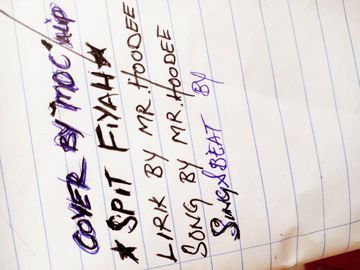 COVER BY "MDC
★ SPIT FIYAH ★
LIRIK BY MR. HOODEE
SONG BY MR. HOODEE
SONG & BEAT BY